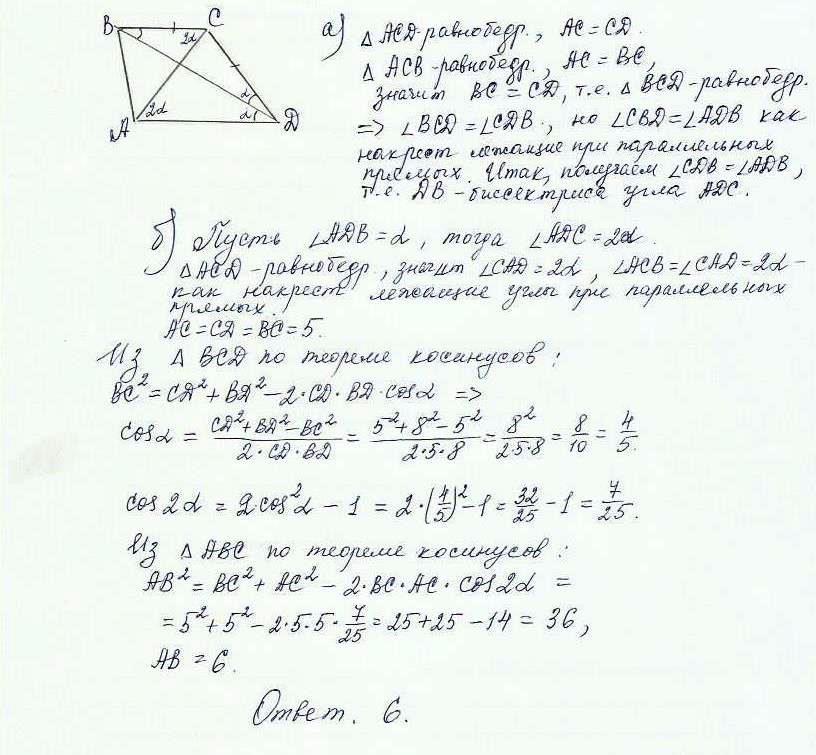 B C 2α α α 2α A D
а) △ ACD-равнобедр., AC = CD.
△ ACB-равнобедр., AC = BC,
значит BC = CD, т.е. △ BCD-равнобедр.
=> ∠BCD = ∠CDB, но ∠CBD = ∠ADB как
накрест лежащие при параллельных
прямых. Итак, получаем ∠CDB = ∠ADB,
т.е. DB - биссектриса угла ADC.
б) Пусть ∠ADB = α, тогда ∠ADC = 2α.
△ ACD - равнобедр., значит ∠CAD = 2α, ∠ACB = ∠CAD = 2α -
как накрест лежащие углы при параллельных
прямых.
AC = CD = BC = 5.
Из △ BCD по теореме косинусов:
BC² = CD² + BD² - 2·CD·BD·cosα =>
cosα = (CD² + BD² - BC²)/(2·CD·BD) = (5² + 8² - 5²)/(2·5·8) = 8²/(2·5·8) = 8/10 = 4/5.
cos2α = 2cos²α - 1 = 2·(4/5)² - 1 = 32/25 - 1 = 7/25.
Из △ ABC по теореме косинусов:
AB² = BC² + AC² - 2·BC·AC·cos2α =
= 5² + 5² - 2·5·5·7/25 = 25 + 25 - 14 = 36,
AB = 6.
Ответ. 6.